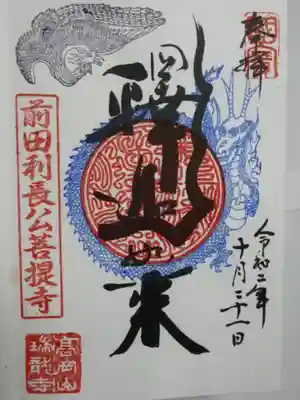 奉拝
釋迦如来
令和二年
十月三十一日
前田利長公菩提寺
高岡山
瑞龍寺